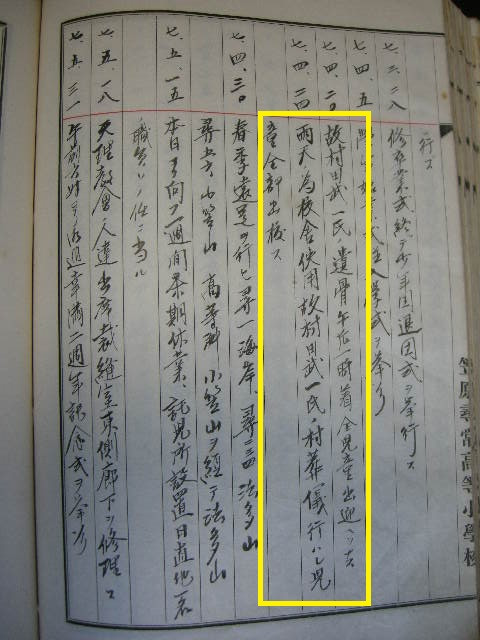 行フ
七、三、二八 修卒業式終テ少年団退団式ヲ挙行ス
七、四、五 始業式入學式ヲ挙行
七、四、二〇 故村田武一氏ノ遺骨午后一時着全児童出迎ヘヲナス
七、四、二四 雨天ノ為校舎使用故村田武一氏ノ村葬儀行ハレ児
童全部出校ス
七、四、三〇 春季遠足ヲ行ヒ尋一海岸、尋二三四法多山
尋五六小笠山 高等科 小笠山ヲ經テ法多山
七、五、一五 本日ヨリ向フ一週間農期休業、託児所設置日直他一名
職員ソノ任ニ当ル
七、五、一八 天理教會ノ人達出席裁縫室東側廊下ヲ修理ス
七、五、三一 午前
笠原尋常高等小學校